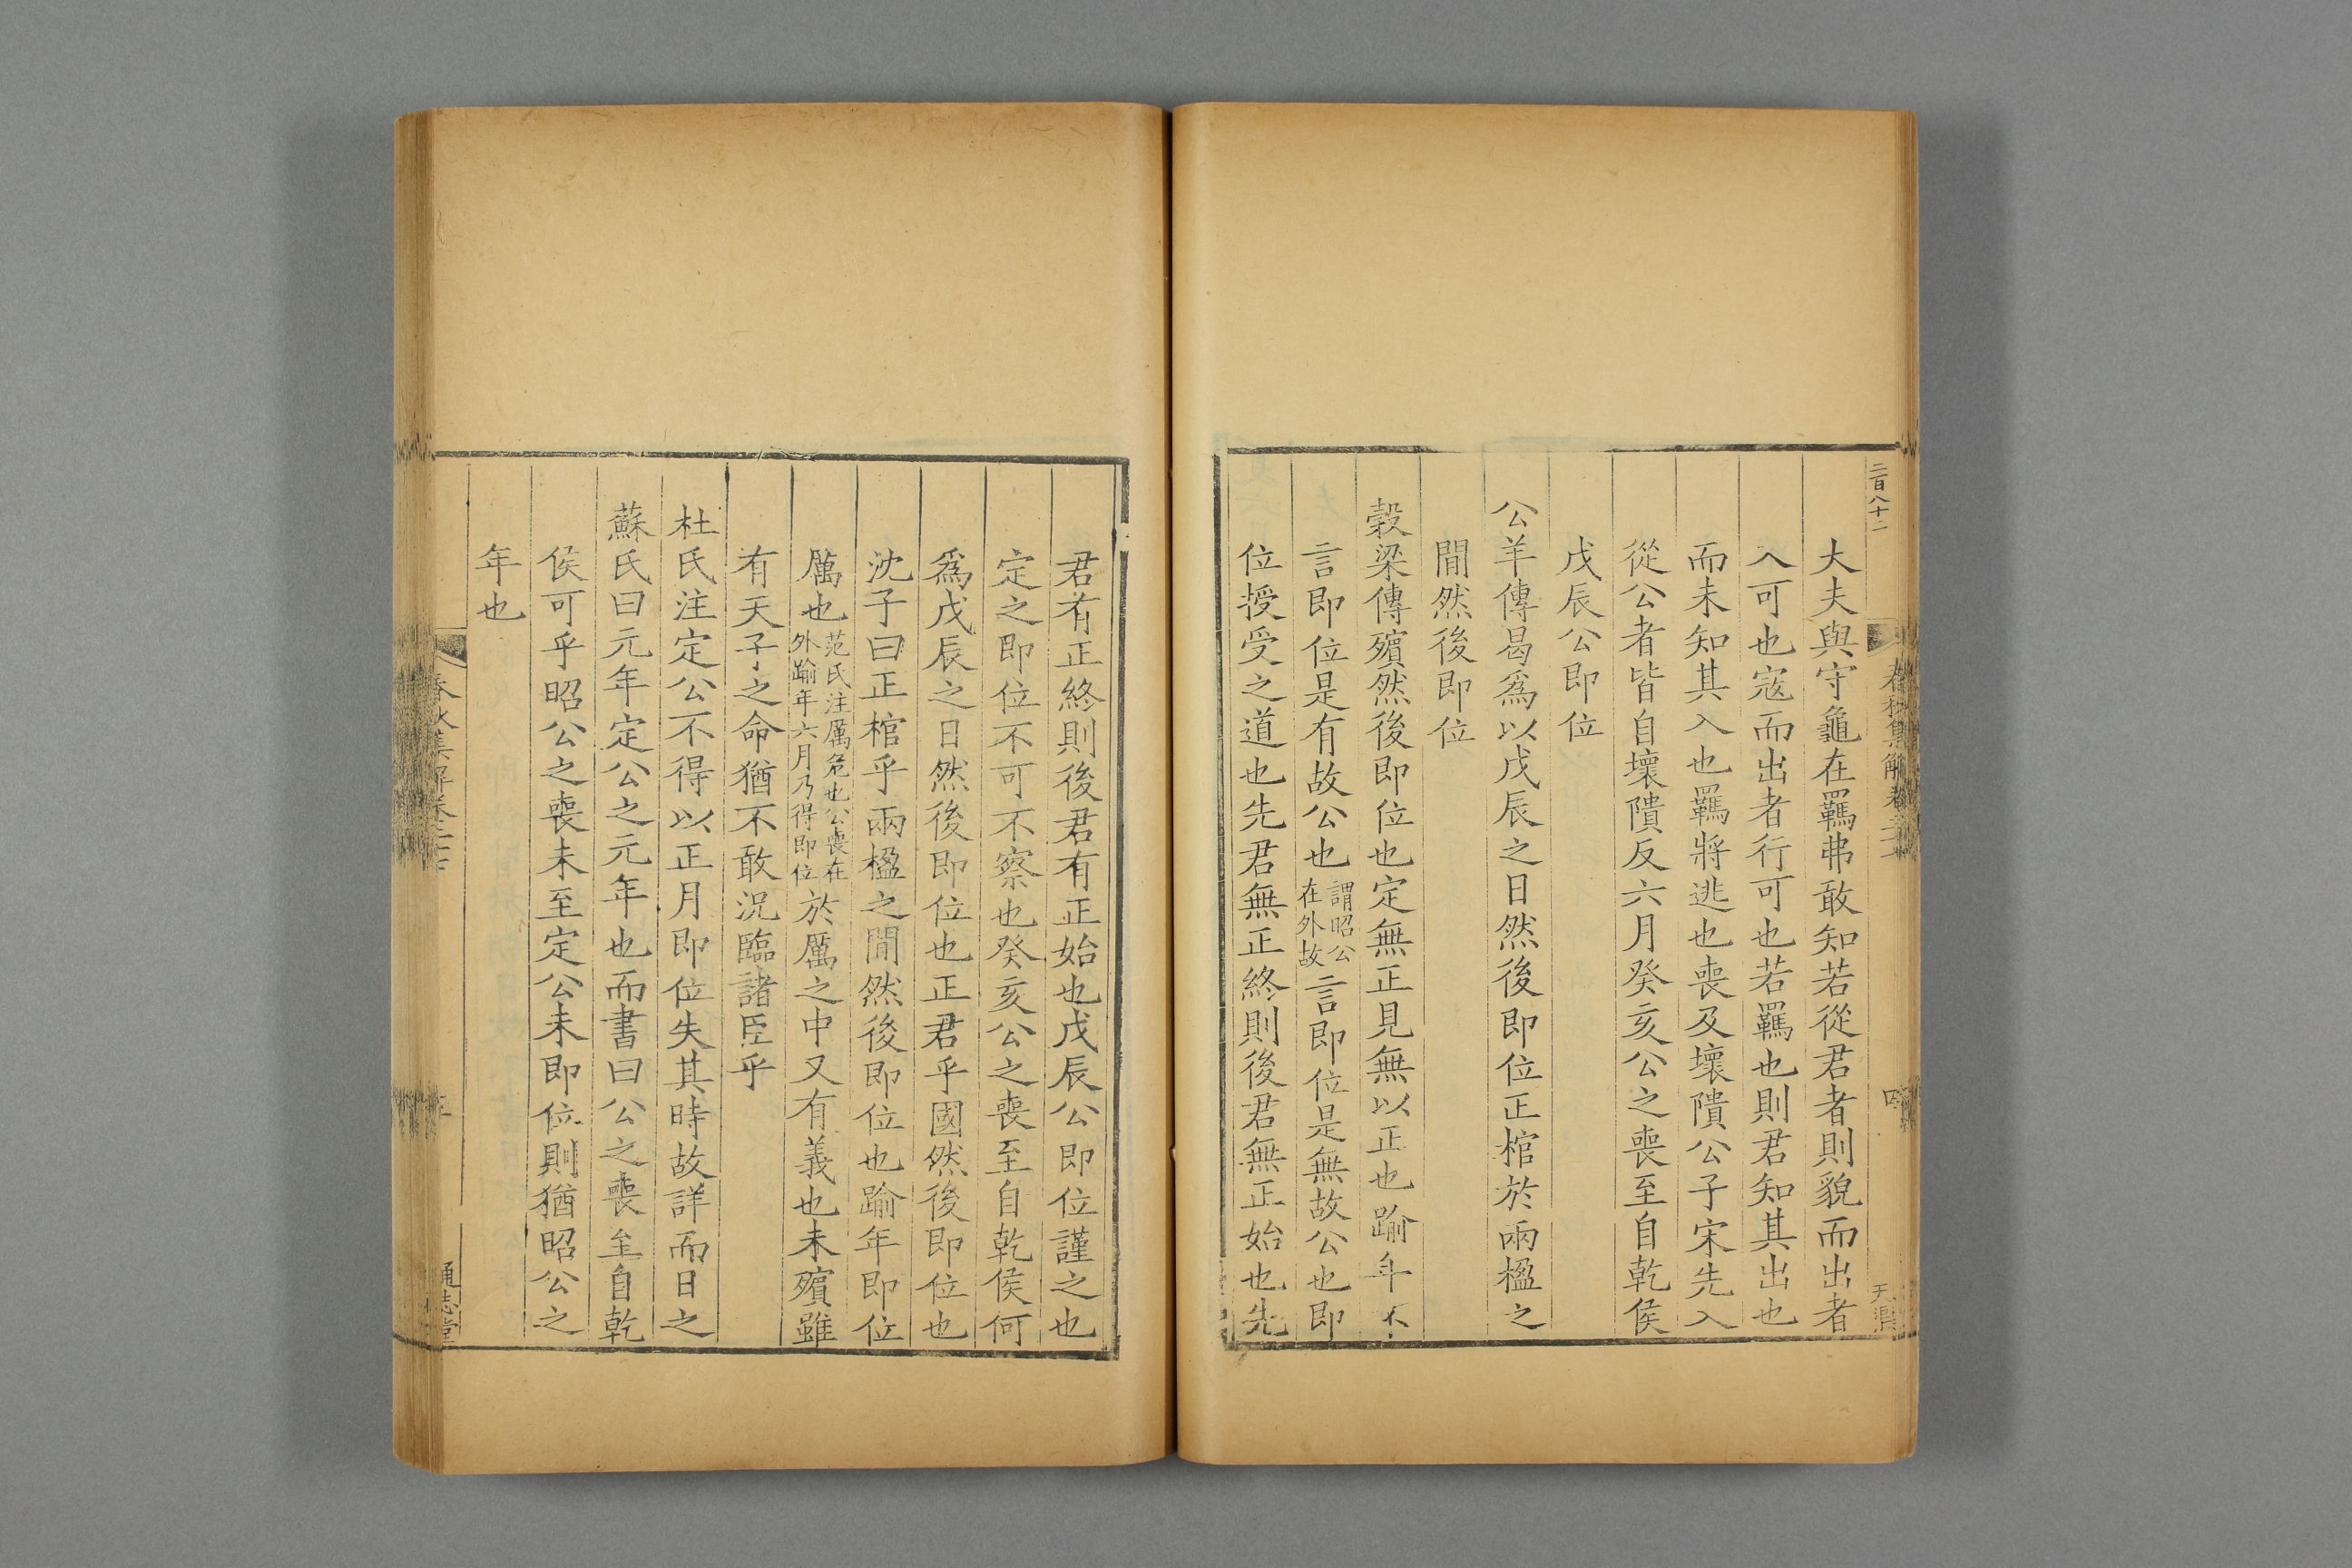 二百八十二
春秋集解卷
四
大夫與守龜在羈弗敢知若從君者則貌而出者
入可也寇而出者行可也若羈也則君知其出也
而未知其入也羈將逃也喪及壞隤公子宋先入
從公者皆自壞隤反六月癸亥公之喪至自乾侯
戊辰公即位
公羊傳曷爲以戊辰之日然後即位正棺於兩楹之
閒然後即位
穀梁傳殯然後即位也定無正見無以正也踰年不
言即位是有故公也謂昭公在外故言即位是無故公也即
位授受之道也先君無正終則後君無正始也先
君有正終則後君有正始也戊辰公即位謹之也
定之即位不可不察也癸亥公之喪至自乾侯何
爲戊辰之日然後即位也正君乎國然後即位也
沈子曰正棺乎兩楹之閒然後即位也踰年即位
厲也范氏注厲危也公喪在外踰年六月乃得即位於厲之中又有義也未殯雖
有天子之命猶不敢況臨諸臣乎
杜氏注定公不得以正月即位失其時故詳而日之
蘇氏曰元年定公之元年也而書曰公之喪至自乾
侯可乎昭公之喪未至定公未即位則猶昭公之
年也
春秋集解卷
通志堂